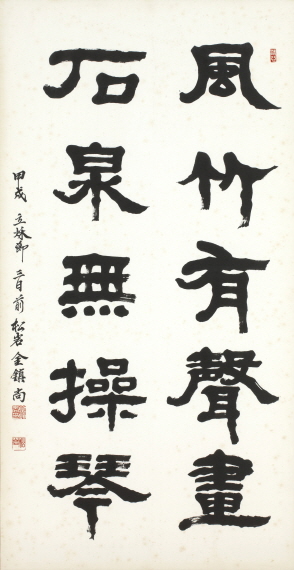 風竹有聲畫
石泉無操琴
甲戌立秋節三日前松岩金鎭尚